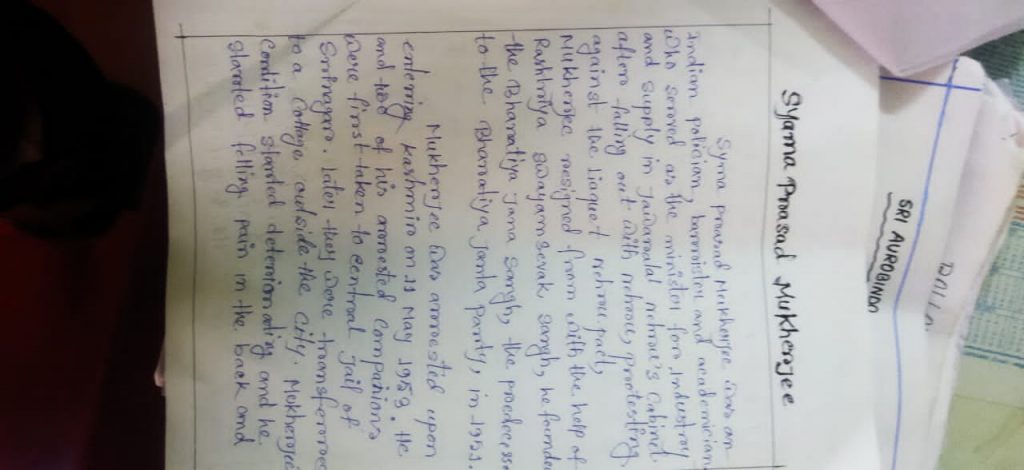 Syama Prasad Mukherjee
Syma prasad Mukherjee was an
Indian politician, barroister and academician
who serroved as the minister forro Industrroy
and supply in Jawaralal nehroe's Cabinet.
afterro falling out with nehroe, protesting
against the liaquet nehroe pact,
Mukherjee resigned from with the help of
Rashtriya swayamsevak sangh, he founded
the Bharatiya Jana sangh, the predecesso
to the Bharatiya janta party, in 1951.
Mukherjee was arroested upon
entering Kashmiro on 11 May 1953. He
and two of his arroested Companions
were first taken to central Jail of
Srinagaro. Later they were transferroe
to a cottage outside the City. Mukherjee
Condition started deteriorating and he
started filling pain in the back and
SRI AUROBINDO